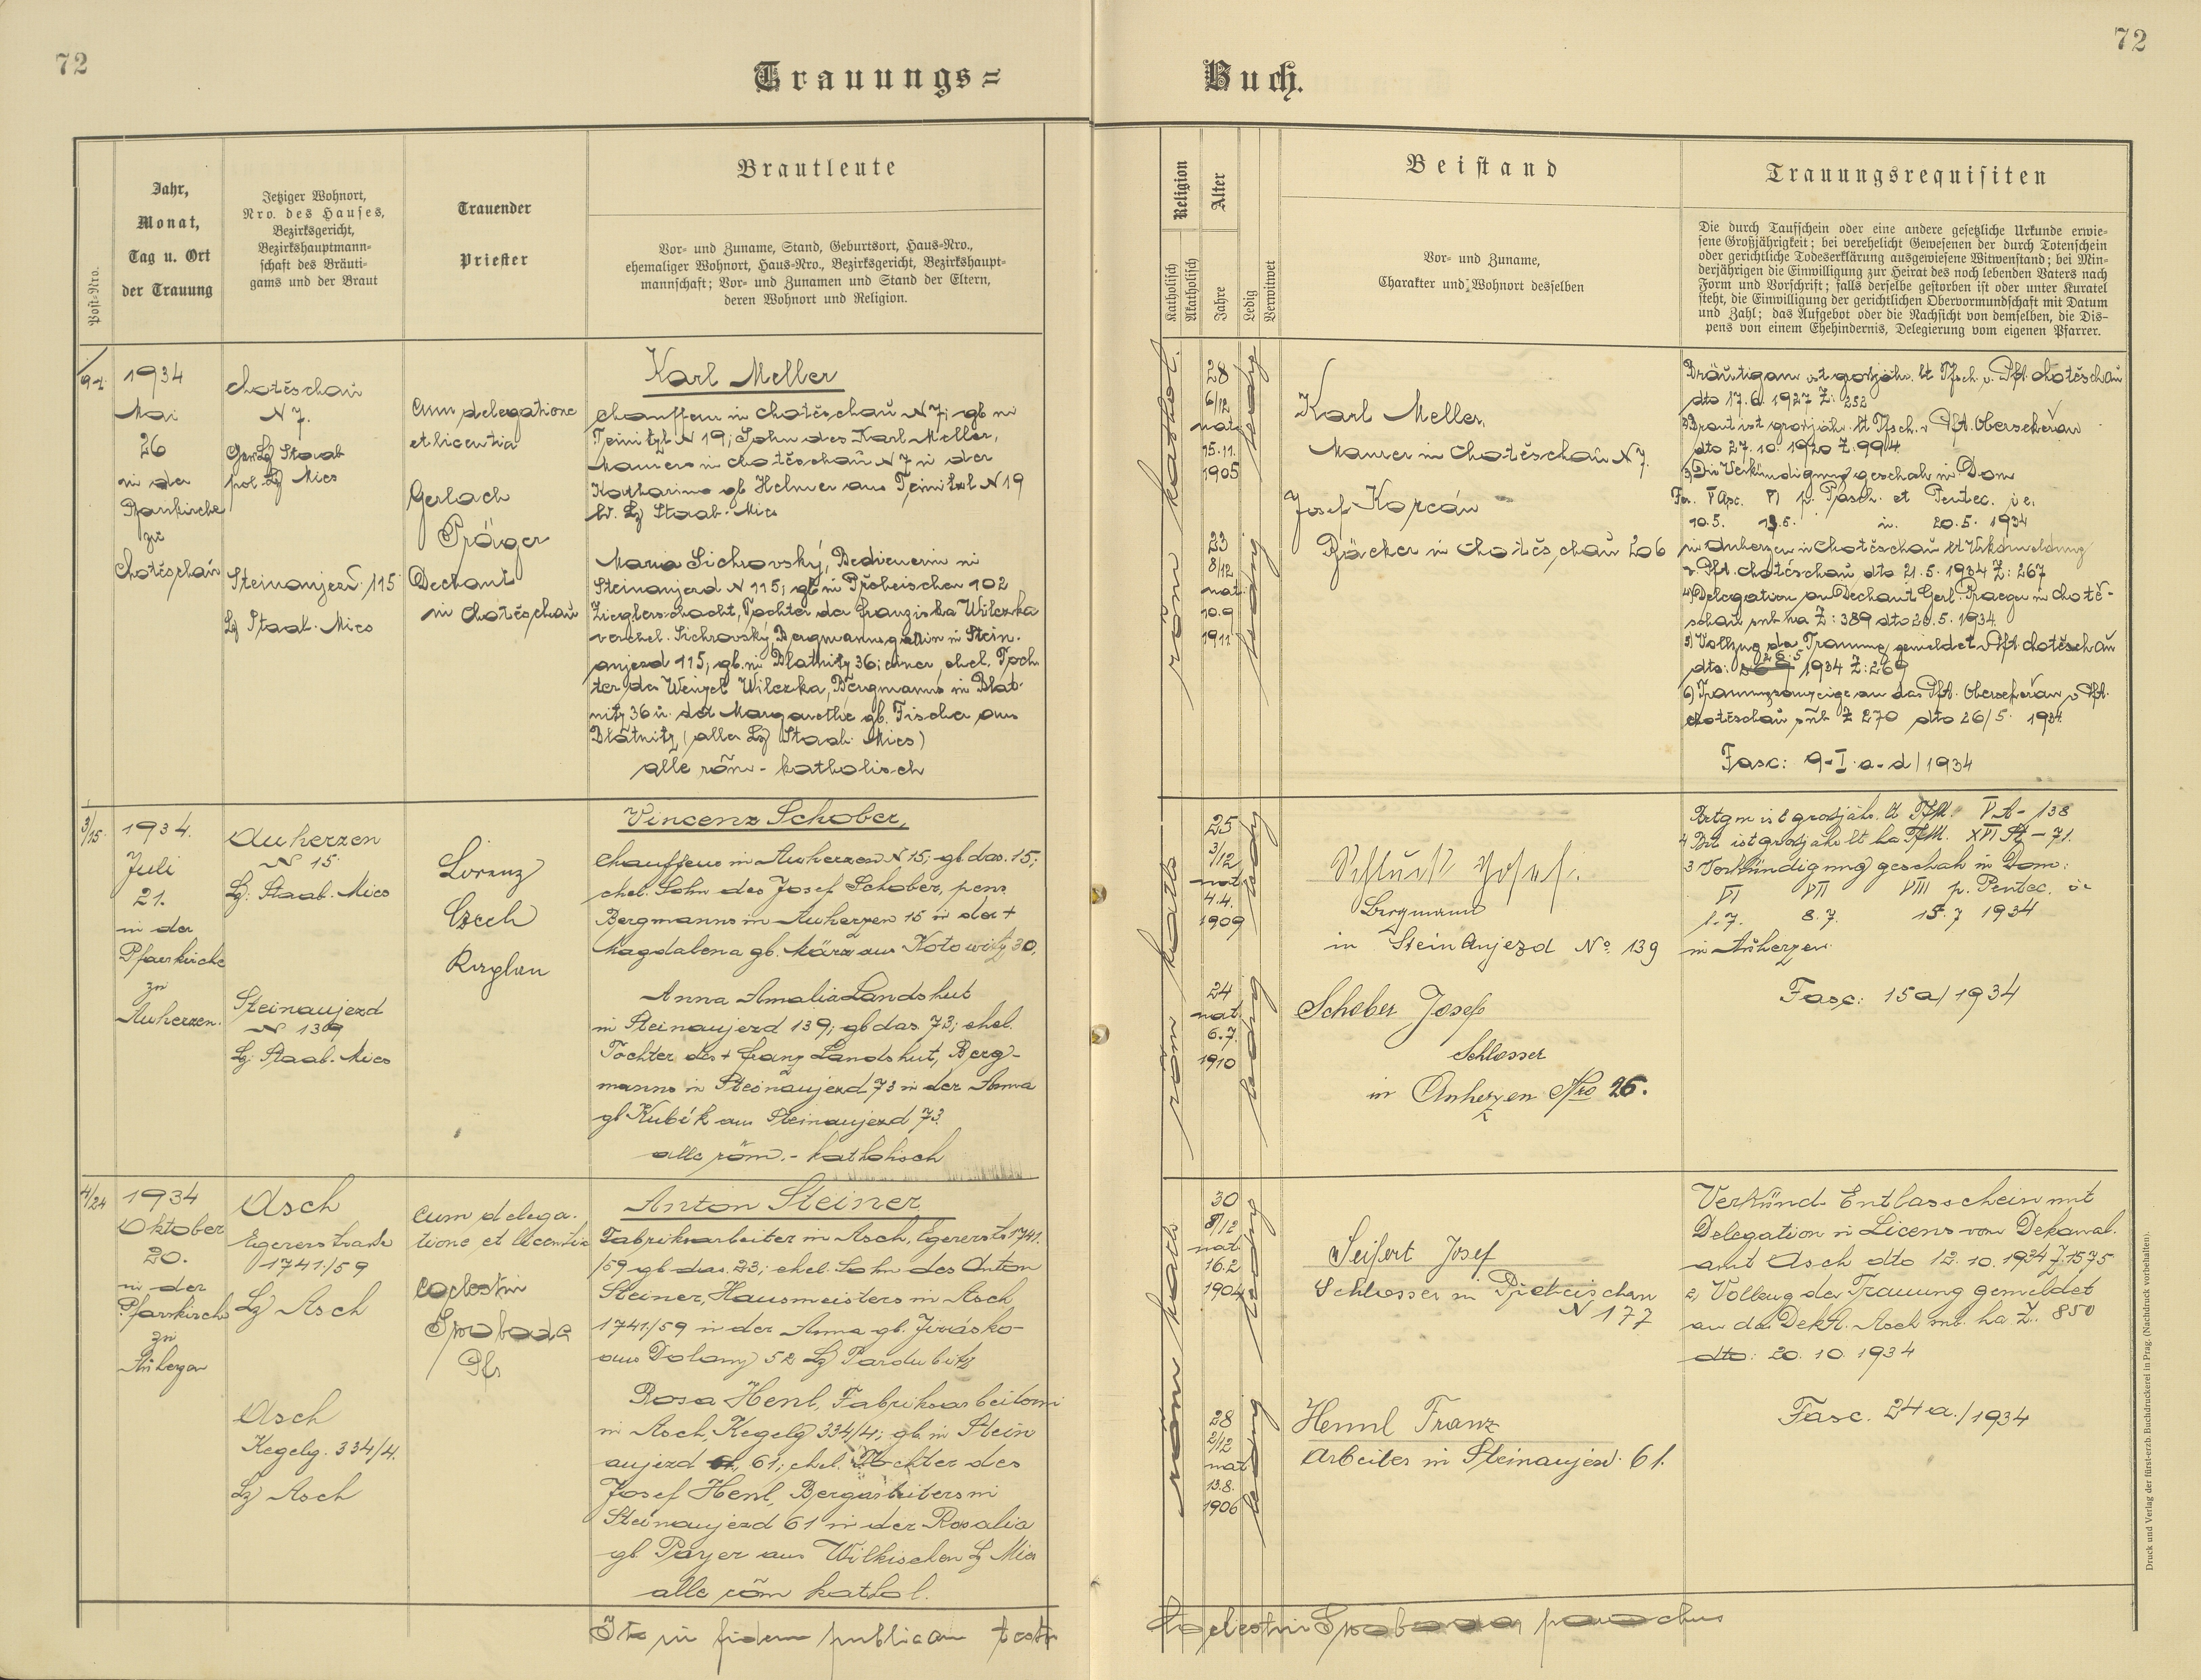 72
72
Trauungs=
Buch.
Post-Nro.
Jahr,
Monat,
Tag u. Ort
der Trauung
Jetziger Wohnort,
Nro. des Hauses,
Bezirksgericht,
Bezirkshauptmann-
schaft des Bräuti-
gams und der Braut
Trauender
Priester
Brautleute
Vor- und Zuname, Stand, Geburtsort, Haus-Nro.,
ehemaliger Wohnort, Haus-Nro., Bezirksgericht, Bezirkshaupt-
mannschaft; Vor- und Zunamen und Stand der Eltern,
deren Wohnort und Religion.
Religion
Katholisch
Akatholisch
Alter
Jahre
Ledig
Verwitwet
Beistand
Vor- und Zuname,
Charakter und Wohnort desselben
Trauungsrequisiten
Die durch Taufschein oder eine andere gesetzliche Urkunde erwie-
sene Großjährigkeit; bei verehelicht Gewesenen der durch Totenschein
oder gerichtliche Todeserklärung ausgewiesene Witwenstand; bei Min-
derjährigen die Einwilligung zur Heirat des noch lebenden Vaters nach
Form und Vorschrift; falls derselbe gestorben ist oder unter Kuratel
steht, die Einwilligung der gerichtlichen Obervormundschaft mit Datum
und Zahl; das Aufgebot oder die Nachsicht von demselben, die Dis-
pens von einem Ehehindernis, Delegierung vom eigenen Pfarrer.
1934
Mai
26
in der
Pfarrkirche
zu
Chotěschau
Chotěschau
N 7.
Staab
Mies
Steinaujezd 115
Lg Staab. Mies
cum delegatione
et licentia
Gerlach
Präger
Dechant
in Chotěschau
Karl Meller
Chauffeur in Chotěschau N 7; gb in
Teinitzl N 19; Sohn des Karl Meller,
Maurers in Chotěschau N 7 u der
Katharina gb Helmer aus Teinitzl N 19
Lg Staab. Mies
Maria Sichrovský, Bedienerin in
Steinaujezd N 115; gb in Přeheischen 102
Zieglerschacht, Tochter der Franziska Wilczka
verehel. Sichrovský Bergmannsgattin in Stein-
aujezd 115; gb. in Blatnitz 36; einer ehel. Toch
ter des Wenzel Wilczka, Bergmanns in Blat-
nitz 36 u. der Margarethe gb. Fischer aus
Blatnitz (alle Lg Staab. Mies)
alle röm - katholisch
röm kathol.
28
6/12
nat.
15.11.
1905
ledig
23
8/12
nat.
10.9
1911
ledig
Karl Meller,
Maurer in Chotěschau N 7.
Josef Korcán
Bäcker in Chotěschau 206
Bräutigam ist grosjähr. lt Tfsch. v. Pft. Chotěschau
dto 17.6. 1927 Z: 252
2) Braut ist grosjähr. lt Tfsch. v Pft. Obersekeřan
dto 27. 10. 1920 Z. 994.
3) Die Verkündigung geschah in Dom
Fer. V Asc. VI p. Pasch. et Pentec. i.e.
10.5. 13.5. u. 20.5. 1934
in Auherzen u Chotěschau
v. Pft. Chotěschau dto 21.5. 1934 Z: 267
4) Delegation an Dechant Gerl. Praeger in Chotě-
schau sub ha Z: 389 dto 20.5. 1934.
5) Vollzug der Trauung gemeldet v Pft Chotěschau
dto: 26.5 1934 Z: 269
6) Trauungsanzeige an das Pft. Obersekeřan v Pft.
Chotěschau sub Z 270 dto 26/5. 1934
Fasc: 9-I. a-d/1934
3/15.
1934.
Juli
21.
in der
Pfarrkirche
zu
Auherzen.
Auherzen
N 15.
Lg. Staab. Mies
Steinaujezd
N 139
Lg. Staab. Mies
Lorenz
Czech
Kaplan
Vincenz Schober,
Chauffeur in Auherzen N 15; gb das. 15;
ehel. Sohn des Josef Schober, pens.
Bergmanns in Auherzen 15 u der +
Magdalena gb. März aus Kotowitz 30,
Anna Amalia Landshut
in Steinaujezd 139; gb das. 73; ehel.
Tochter des + Franz Landshut, Berg-
manns in Steinaujezd 73 u der Anna
gb Kubík aus Steinaujezd 73.
alle röm. - katholisch
röm kath
25
3/12
nat.
4.4.
1909
ledig
24
nat.
6.7.
1910
ledig
Josef.
Bergmann
in Steinaujezd No. 139
Schober Josef
Schlosser
in Auherzen Nro 26.
Brtgm ist grosjähr. lt Tfm. V A - 138
Brt ist grosjähr lt ha Tfm. XVI St - 71.
3 Verkündigung geschah in Dom:
VI VII VIII p. Pentec. i.e
1.7. 8.7. 15.7 1934
in Auherzen.
Fasc: 15a/1934
4/24
1934
Oktober
20.
in der
Pfarrkirche
zu
Auherzen
Asch
Egererstraße
1741/59
Lg Asch
Asch
Kegelg. 334/4.
Lg Asch
cum delega-
tione et licentia
Coelestin
Swoboda
Pfr
Anton Steiner
Fabriksarbeiter in Asch, Egererst 1741.
/59 gb das. 23; ehel. Sohn des Anton
Steiner, Hausmeisters in Asch
1741/59 u der Anna gb. Jirásko-
aus Dolany 52 Lg Pardubitz
Rosa Henl, Fabriksarbeiterin
in Asch, Kegelg 334/4; gb. in Stein
aujezd 61; ehel. Tochter des
Josef Henl, Bergarbeiters in
Steinaujezd 61 u der Rosalia
gb Payer aus Wilkischen Lg Mies
alle röm kathol.
röm kath
30
8/12
nat.
16.2
1904
ledig
28
2/12
nat
13.8.
1906
ledig
Seifert Josef
Schlosser in
N 177
Henl Franz
Arbeiter in Steinaujezd. 61.
Verkünd- Entlasschein mit
Delegation u Licens vom Dekanal-
amt Asch dto 12. 10. 1934 Z. 1575
2) Vollzug der Trauung gemeldet
an das DekA. Asch sub. ha Z. 850
dto: 20. 10. 1934
Fasc. 24 a./1934
Ita in fidem publicam testor
Coelestin Swoboda parochus
Druck und Verlag der fürst-erzb. Buchdruckerei in Prag. (Nachdruck vorbehalten).